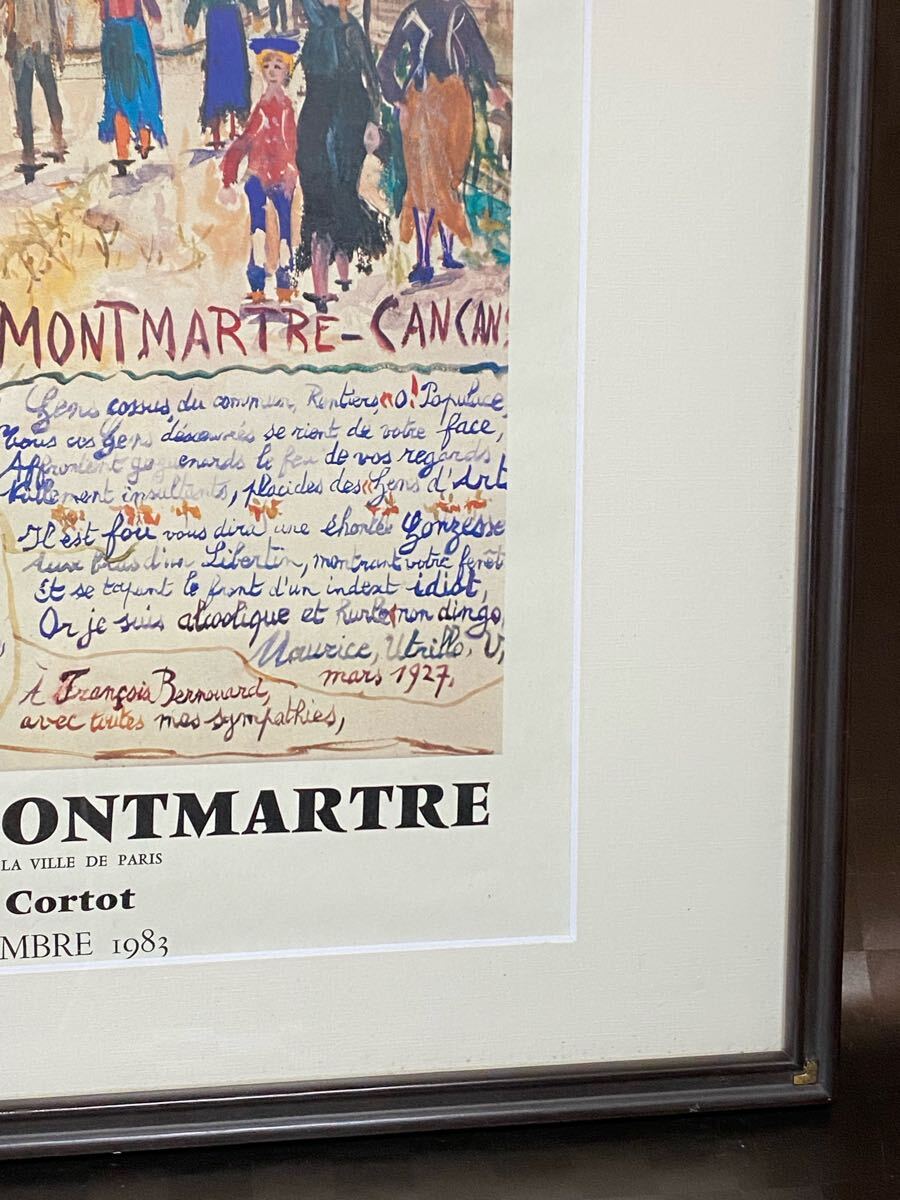 MONTMARTRE-CANCANS
Gens cossus, du commun, Rentiers, "O! Populace,
Tous ces Gens désœuvrés se rient de votre face,
Affrontent goguenards le feu de vos regards
insultants, placides des "Gens d'Art
Il est fou vous dira une éhontée Gonzesse
Aux bras d'un Libertin, montrant votre fenêt
Et se tapant le front d'un index idiot,
Or je suis alcoolique et non dingo,
Maurice, Utrillo, V,
mars 1927,
À François Bernouard,
avec toutes mes sympathies,
ONTMARTRE
LA VILLE DE PARIS
Cortot
MBRE 1983